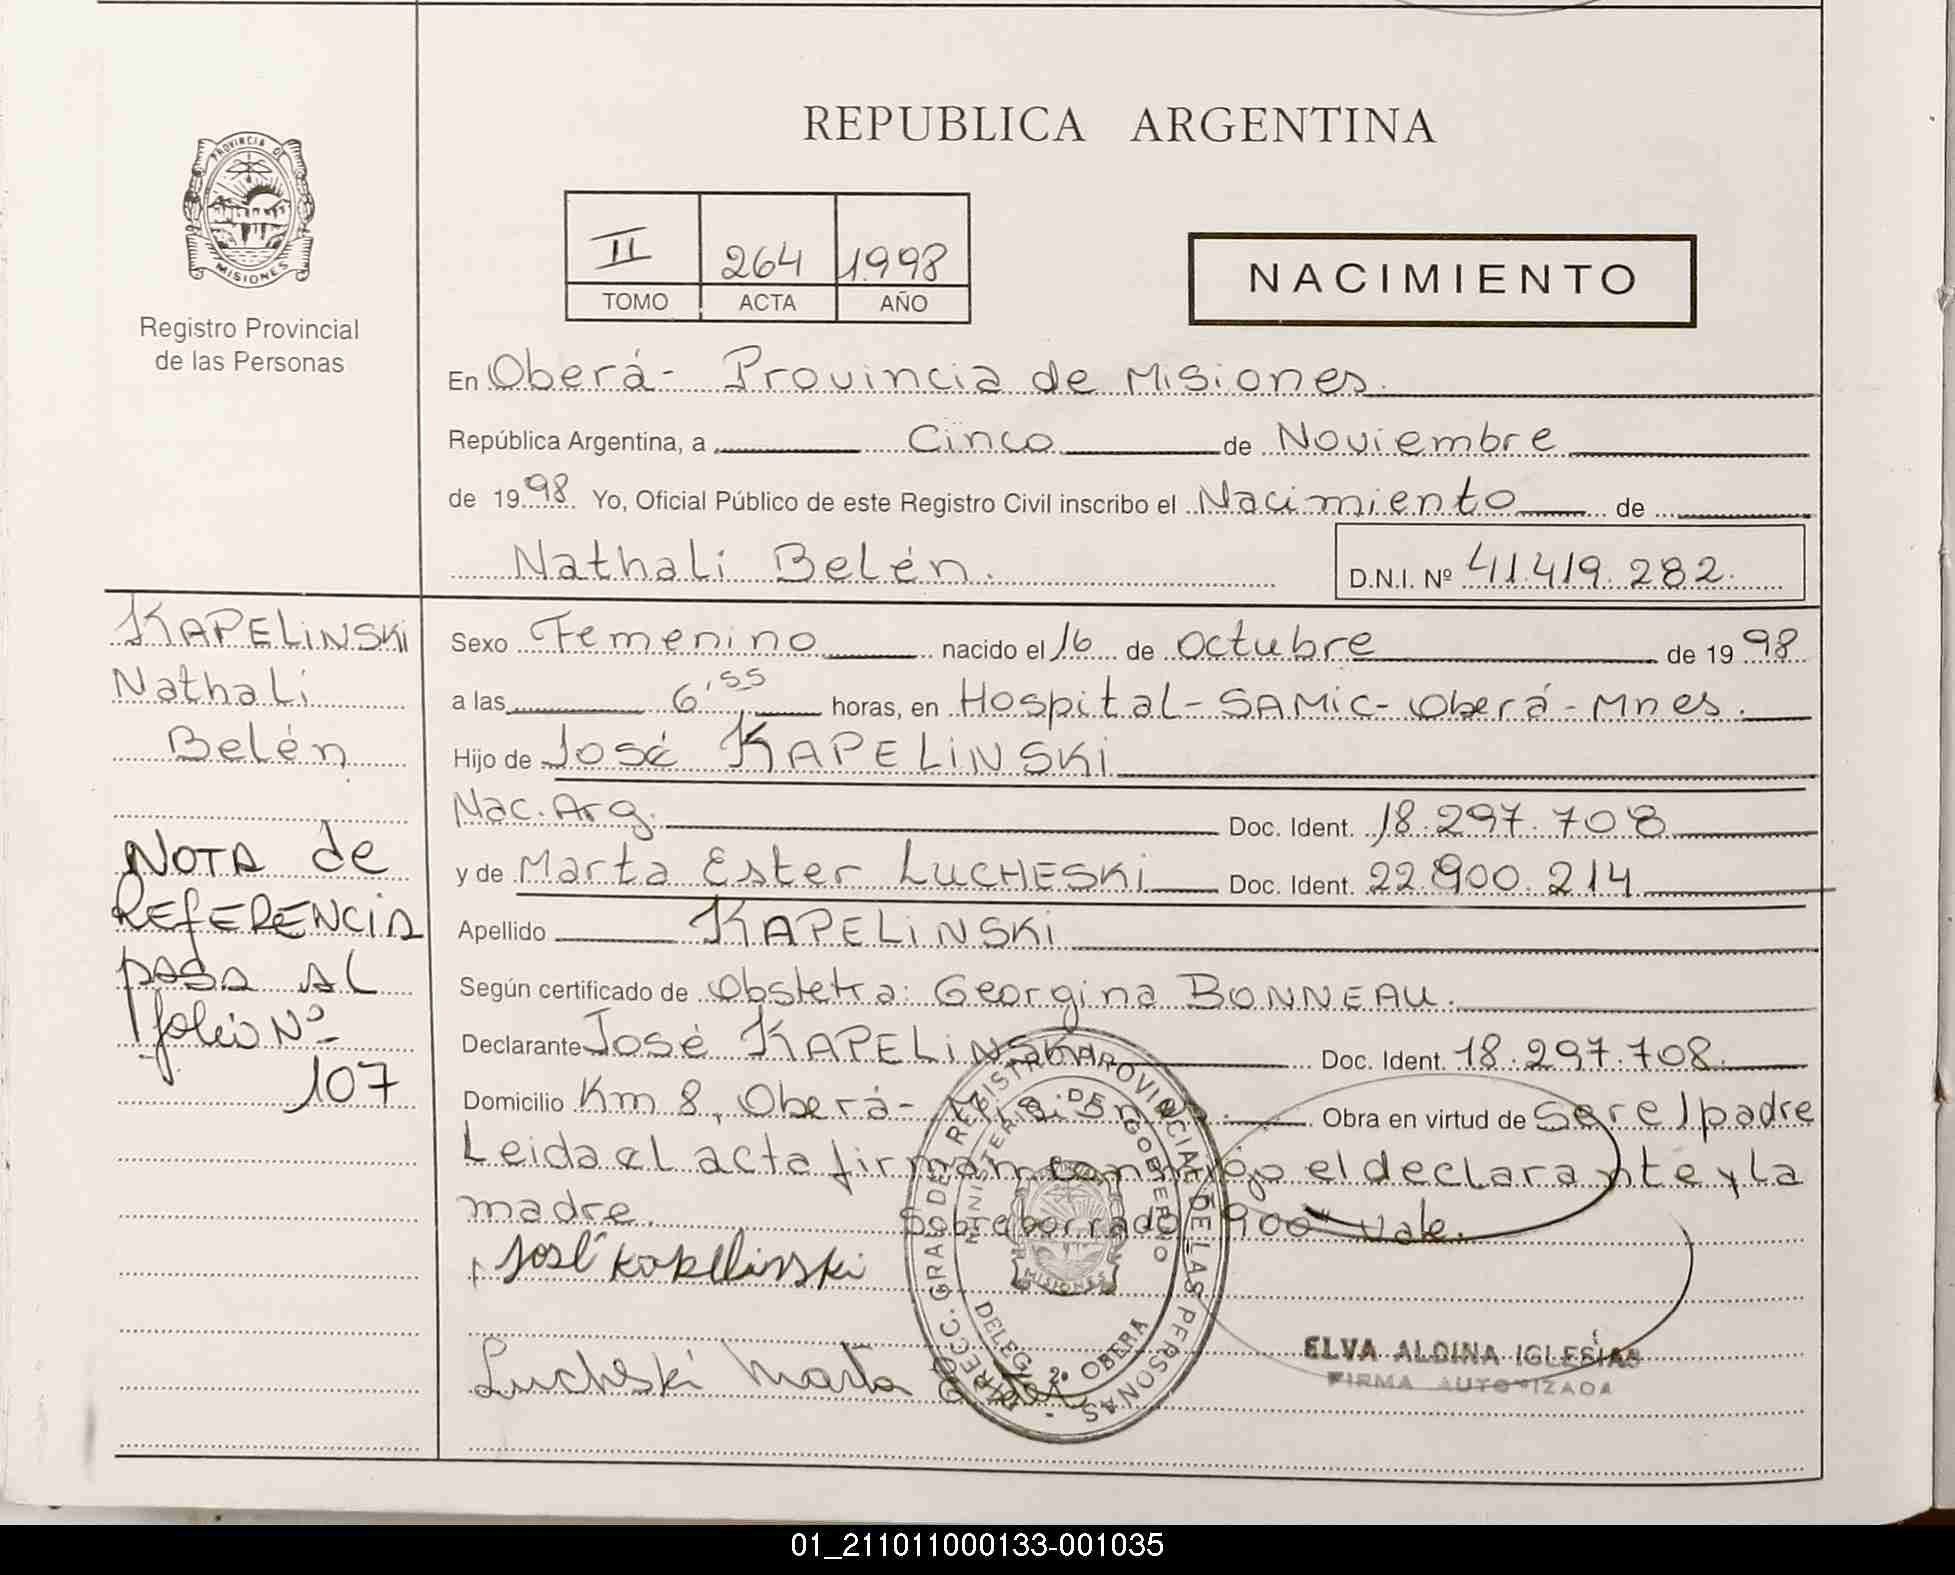 REPUBLICA ARGENTINA
PROVINCIA DE
MISIONES
Registro Provincial
de las Personas
II 264 1998
TOMO ACTA AÑO
NACIMIENTO
En Oberá- Provincia de Misiones.
República Argentina, a Cinco de Noviembre
de 1998 Yo, Oficial Público de este Registro Civil inscribo el Nacimiento de
Nathali Belén. D.N.I. Nº 41.419.282.
KAPELINSKI
Nathali
Belén
NOTA de
REFERENCIA
pasa AL
folio Nº
107
Sexo Femenino nacido el 16 de Octubre de 1998
a las 6'55 horas, en Hospital-SAMIC-Oberá-Mnes.
Hijo de José KAPELINSKI
Nac. Arg. Doc. Ident. 18.297.708
y de Marta Ester LUCHESKI Doc. Ident. 22.900.214
Apellido KAPELINSKI
Según certificado de Obstetra: Georgina BONNEAU.
Declarante José KAPELINSKI Doc. Ident. 18.297.708.
Domicilio Km 8, Oberá- Obra en virtud de Ser el padre
Leida el acta firman conmigo el declarante y la
madre. Sobreborrado "900" Vale.
José Kapelinski
Lucheski Marta Ester
DIRECC. GRAL. DE REGISTRO PROVINCIAL DE LAS PERSONAS -
MINISTERIO DE GOBIERNO
MISIONES
DELEG. 2ª OBERA
ELVA ALDINA IGLESIAS
FIRMA AUTORIZADA
01_211011000133-001035